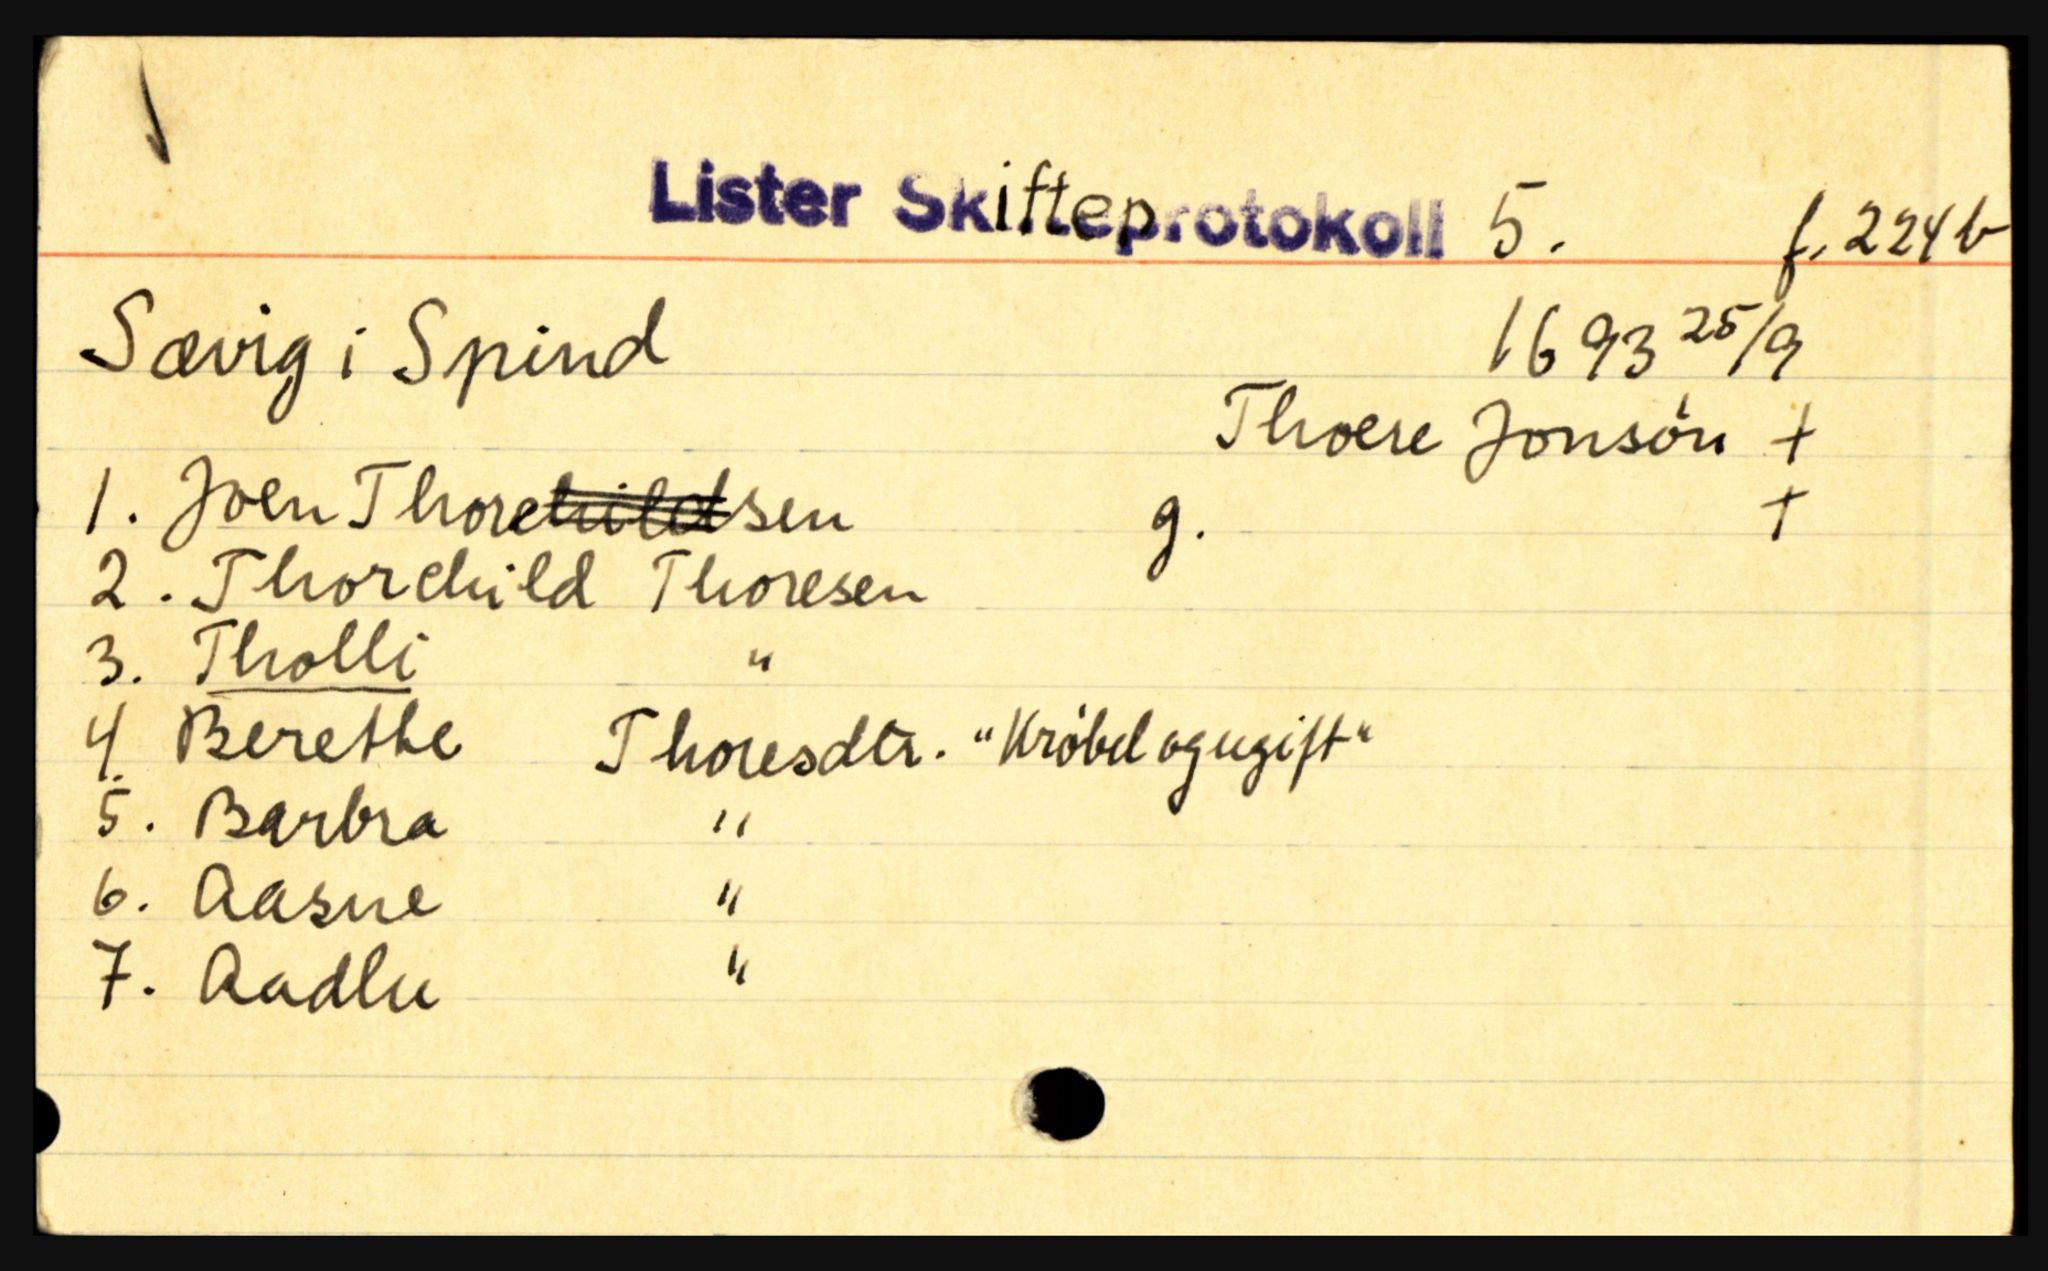 Lister Skifteprotokoll 5. f. 224b
Sævig i Spind 1693 25/9
Thoere Jonsøn +
1. Joen Thorechildsen g. +
2. Thorchild Thoresen
3. Tholli "
4. Berethe Thoresdtr. "Krøbel og ugift"
5. Barbra "
6. Aasne "
7. Aadlu "